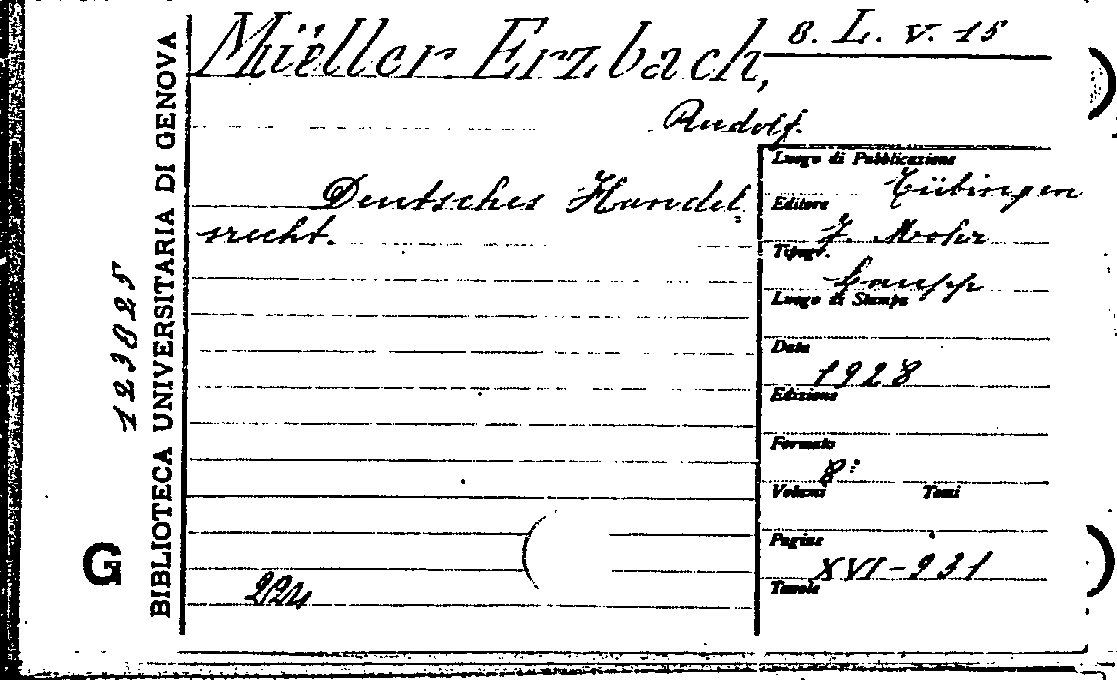 Müeller Erzbach,
8. L. V. 15
Rudolf.
Deutsches Handel
srecht.
Luogo di Pubblicazione
Tübingen
Editore
J. Mohr
Tipogr.
Laupp
Luogo di Stampa
Data
1928
Edizione
Formato
8:
Volumi Tomi
Pagine
XVI-931
Tavole
123825
BIBLIOTECA UNIVERSITARIA DI GENOVA
G